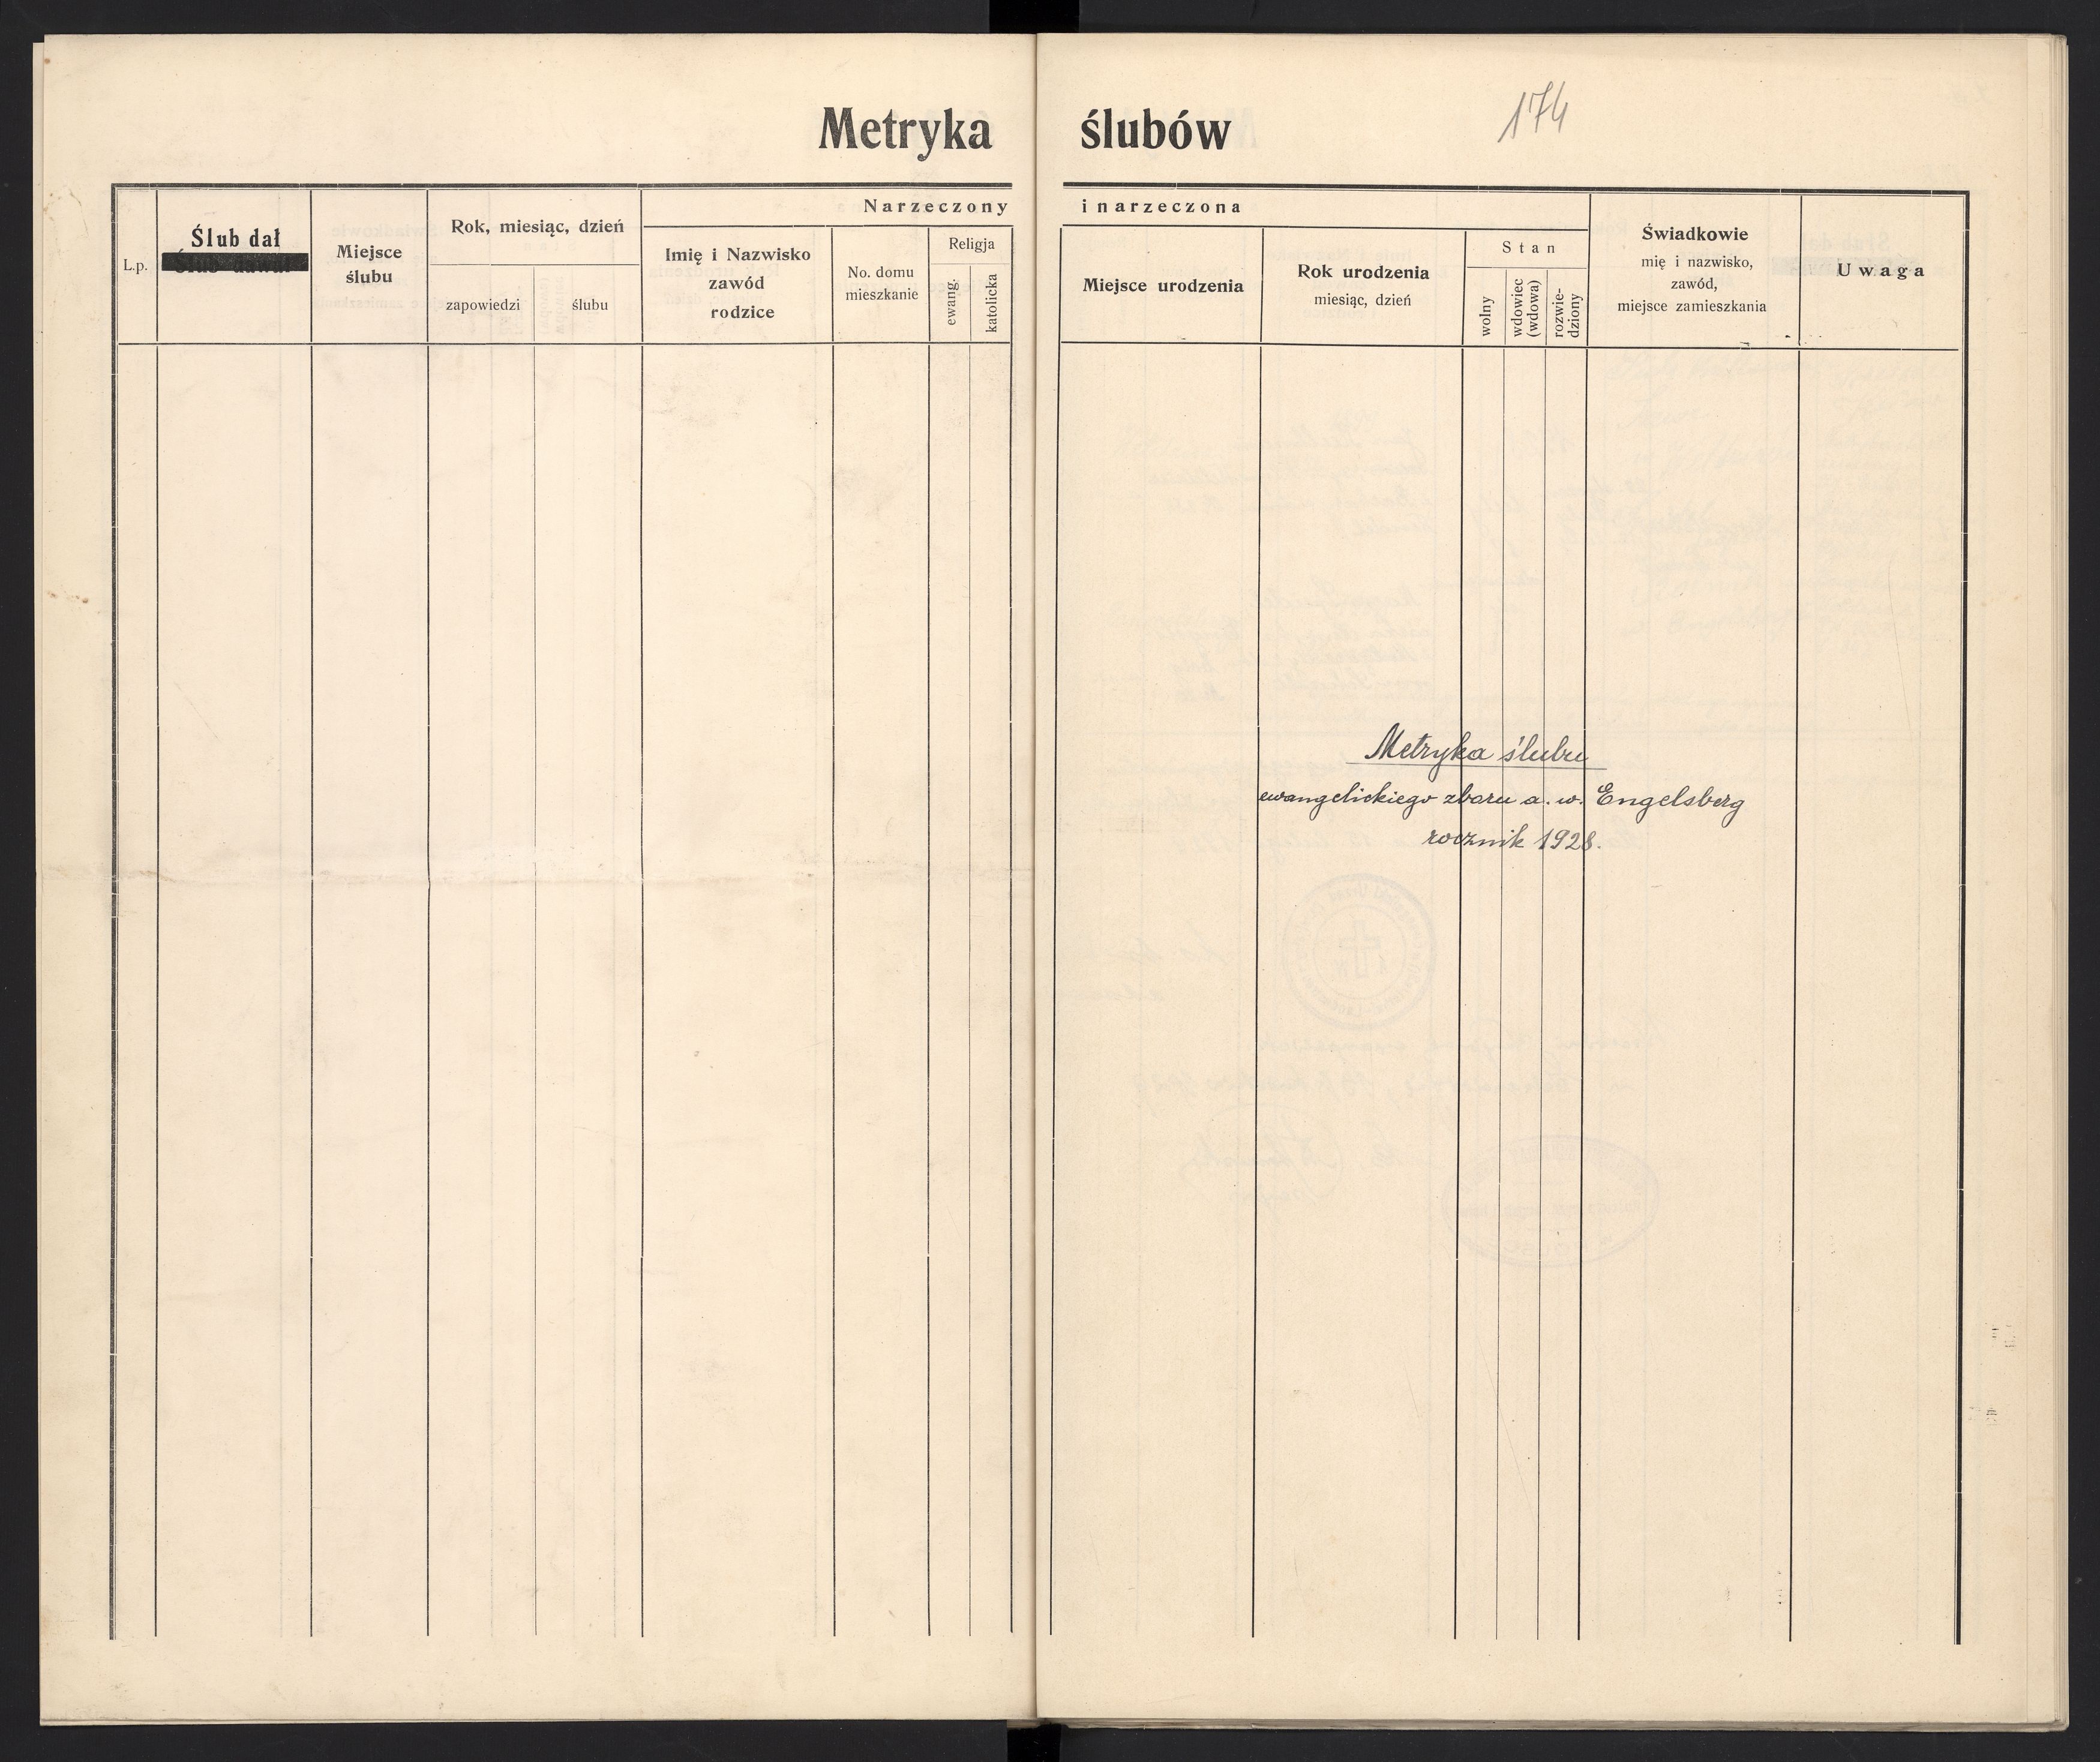 Metryka ślubów
174
Narzeczony i narzeczona
L.p.
Ślub dał
Miejsce
ślubu
Rok, miesiąc, dzień
zapowiedzi
ślubu
Imię i Nazwisko
zawód
rodzice
No. domu
mieszkanie
Religja
ewang.
katolicka
Miejsce urodzenia
Rok urodzenia
miesiąc, dzień
Stan
wolny
wdowiec
(wdowa)
rozwie-
dziony
Świadkowie
mię i nazwisko,
zawód,
miejsce zamieszkania
Uwaga
Metryka ślubu
ewangelickiego zboru a. w. Engelsberg
rocznik 1928.